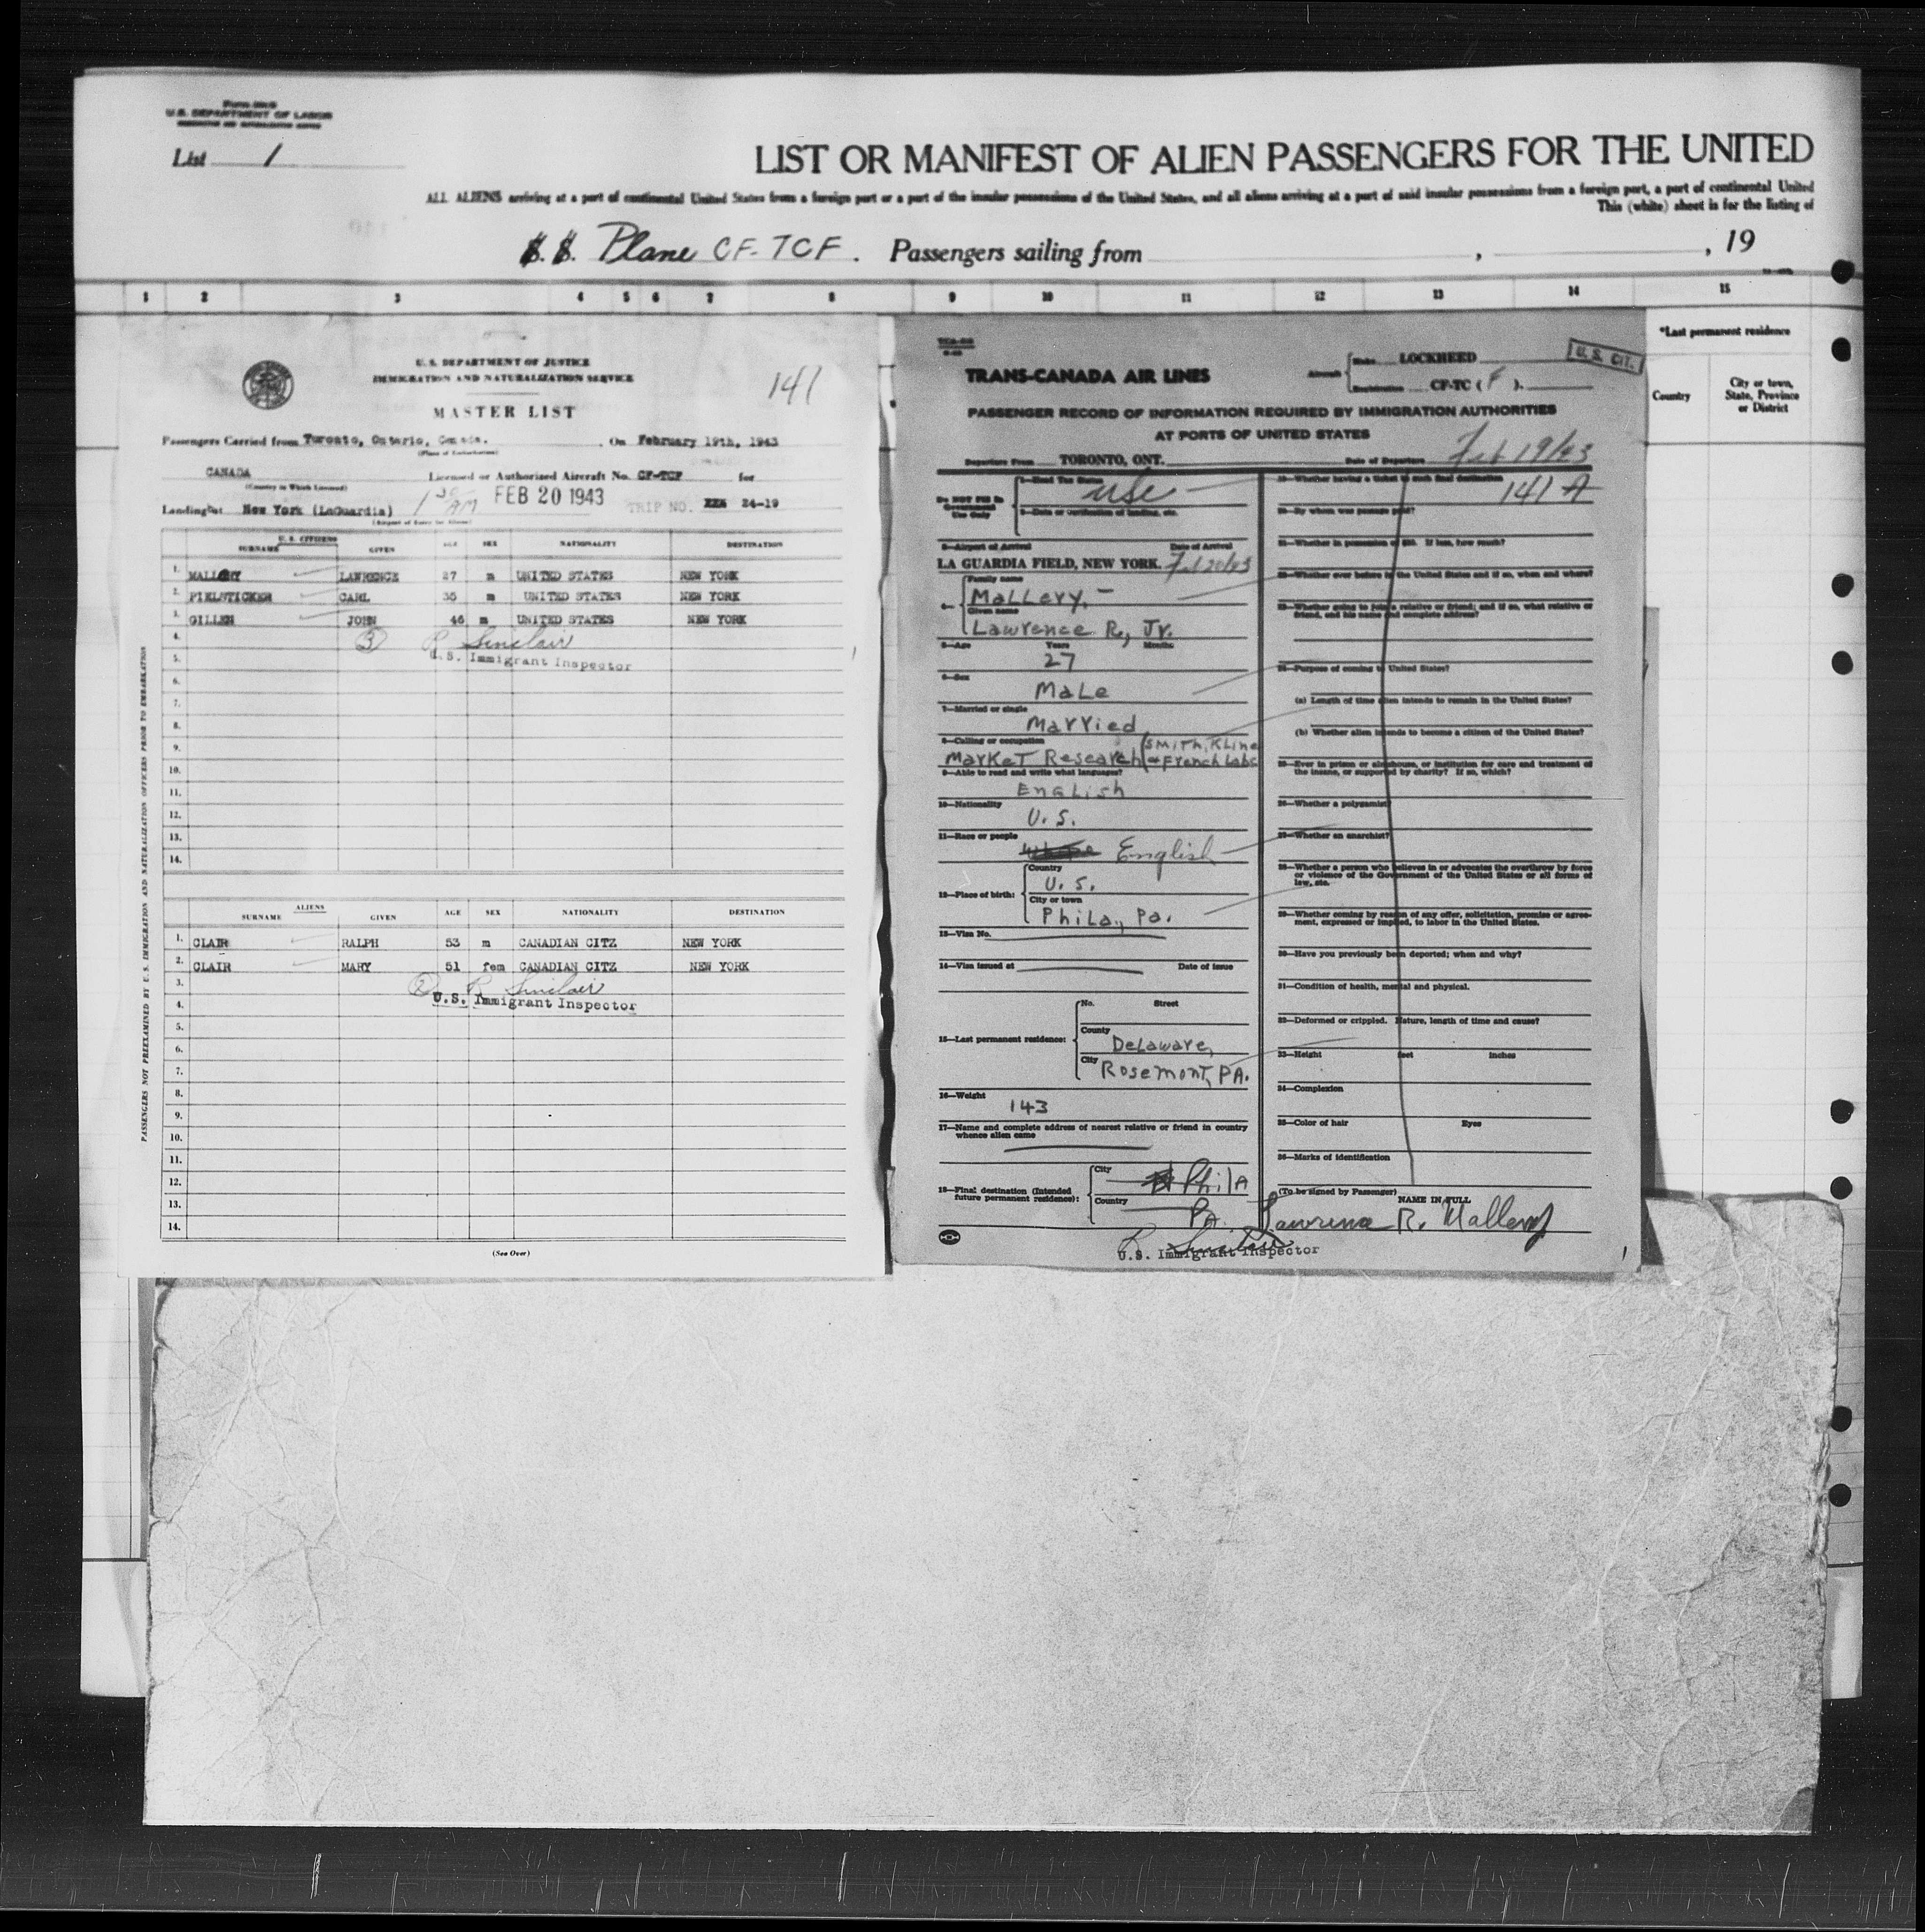 U.S. DEPARTMENT OF LABOR
List 1
LIST OR MANIFEST OF ALIEN PASSENGERS FOR THE UNITED
ALL ALIENS arriving at a port of continental United States from a foreign port or a port of the insular possessions of the United States, and all aliens arriving at a port of said insular possessions from a foreign port, a port of continental United
This (white) sheet is for the listing of
S. S. Plane CF-TCF. Passengers sailing from , , 19
1 2 3 4 5 6 7 8 9 10 11 12 13 14 15
*Last permanent residence
Country
City or town, State, Province or District
U. S. DEPARTMENT OF JUSTICE
IMMIGRATION AND NATURALIZATION SERVICE
141
MASTER LIST
Passengers Carried from Toronto, Ontario, Canada. On February 19th, 1943
(Place of Embarkation)
CANADA Licensed or Authorized Aircraft No. CF-TCF for
(Country in Which Licensed)
Landing at New York (LaGuardia) AM FEB 20 1943 TRIP NO. 24-19
U. S. CITIZENS
SURNAME GIVEN AGE SEX NATIONALITY DESTINATION
1. MALLERY LAWRENCE 27 m UNITED STATES NEW YORK
2. PIELSTICKER CARL 35 m UNITED STATES NEW YORK
3. GILLEN JOHN 46 m UNITED STATES NEW YORK
4. 3 R Sinclair
5. U.S. Immigrant Inspector
6.
7.
8.
9.
10.
11.
12.
13.
14.
ALIENS
SURNAME GIVEN AGE SEX NATIONALITY DESTINATION
1. CLAIR RALPH 53 m CANADIAN CITZ NEW YORK
2. CLAIR MARY 51 fem CANADIAN CITZ NEW YORK
3. 2 R Sinclair
4. U.S. Immigrant Inspector
5.
6.
7.
8.
9.
10.
11.
12.
13.
14.
(See Over)
PASSENGERS NOT PREEXAMINED BY U. S. IMMIGRATION AND NATURALIZATION OFFICERS PRIOR TO EMBARKATION
TRANS-CANADA AIR LINES
Aircraft Make LOCKHEED
Registration CF-TC ( F ).
U. S. CIT.
PASSENGER RECORD OF INFORMATION REQUIRED BY IMMIGRATION AUTHORITIES
AT PORTS OF UNITED STATES
Departure From TORONTO, ONT. Date of Departure Feb 19/43
Do NOT Fill in Government Use Only
1—Head Tax Status
USC
3—Airport of Arrival Date of Arrival
LA GUARDIA FIELD, NEW YORK. Feb 20/43
4— Family name
Mallery, -
Given name
Lawrence R., Jr.
5—Age Years Months
27
6—Sex
Male
7—Married or single
Married
8—Calling or occupation
Market Research (Smith, Kline + French Labs
9—Able to read and write what languages?
English
10—Nationality
U. S.
11—Race or people
English
12—Place of birth: Country
U. S.
City or town
Phila., Pa.
13—Visa No.
14—Visa issued at Date of issue
15—Last permanent residence: No. Street
County
Delaware,
City Rosemont, PA.
16—Weight
143
17—Name and complete address of nearest relative or friend in country whence alien came
18—Final destination (Intended future permanent residence): City
PhilA
Country
PA.
19—Whether having a ticket to such final destination
141 A
20—By whom was passage paid?
21—Whether in possession of $50. If less, how much?
22—Whether ever before in the United States and if so, when and where?
23—Whether going to join a relative or friend; and if so, what relative or friend, and his name and complete address?
24—Purpose of coming to United States?
(a) Length of time alien intends to remain in the United States?
(b) Whether alien intends to become a citizen of the United States?
25—Ever in prison or almshouse, or institution for care and treatment of the insane, or supported by charity? If so, which?
26—Whether a polygamist?
27—Whether an anarchist?
28—Whether a person who believes in or advocates the overthrow by force or violence of the Government of the United States or all forms of law, etc.
29—Whether coming by reason of any offer, solicitation, promise or agreement, expressed or implied, to labor in the United States.
30—Have you previously been deported; when and why?
31—Condition of health, mental and physical.
32—Deformed or crippled. Nature, length of time and cause?
33—Height feet inches
34—Complexion
35—Color of hair Eyes
36—Marks of identification
(To be signed by Passenger) NAME IN FULL
Lawrence R. Mallery
R Sinclair
U.S. Immigrant Inspector